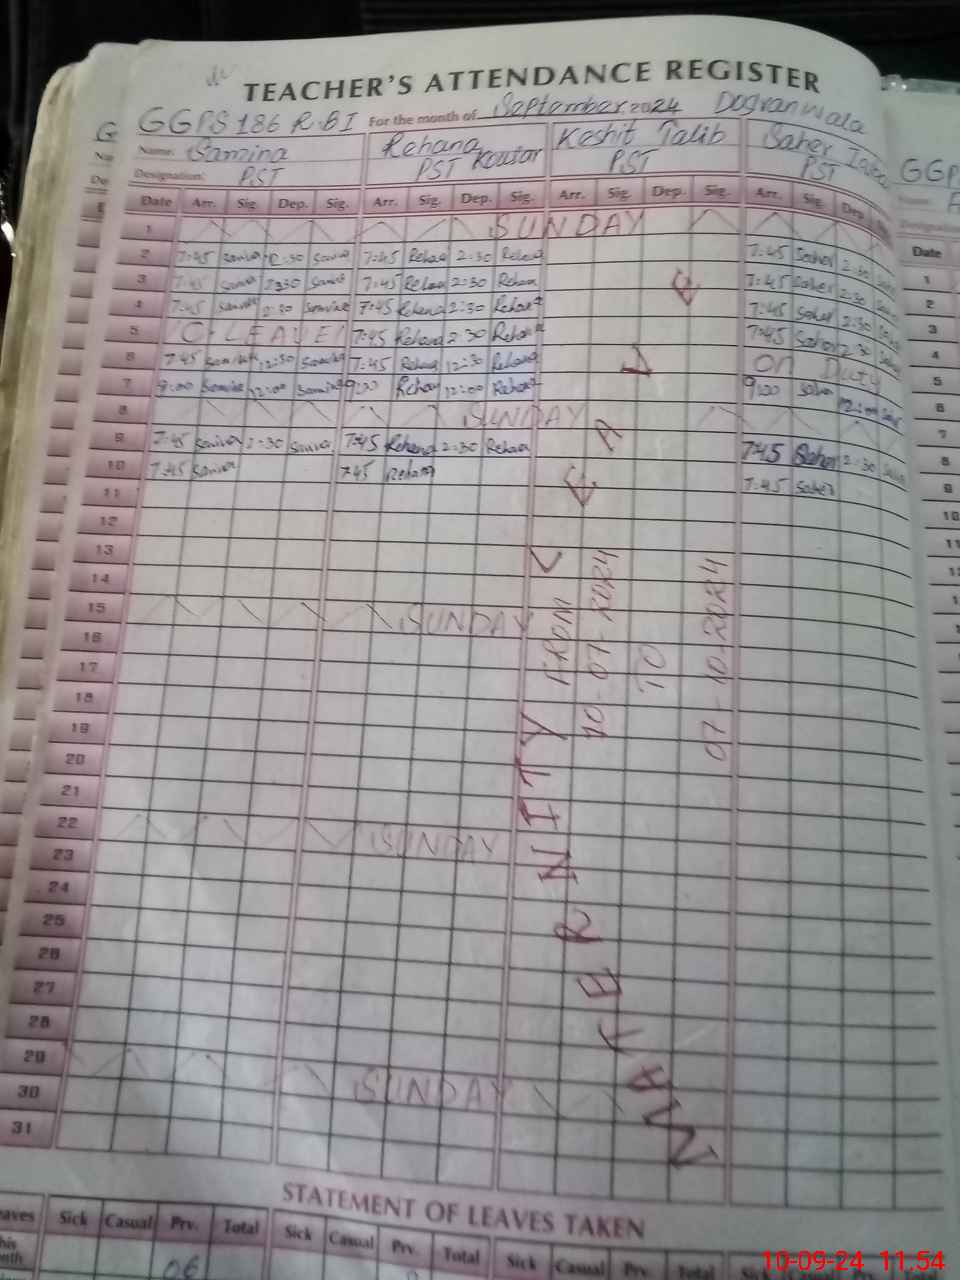 TEACHER'S ATTENDANCE REGISTER
GGPS 186 R.BI For the month of September, 2024 Dogranwala
Name: Samina Rehana Koutar Kashif Talib Saher
Designation: PST PST PST PST
Date Arr. Sig. Dep. Sig. Arr. Sig. Dep. Sig. Arr. Sig. Dep. Sig. Arr. Sig. Dep.
1 SUNDAY
2 7:45 Samina 2:30 Samina 7:45 Rehana 2:30 Rehana 7:45 Saher 2:30
3 7:45 Samina 2:30 Samina 7:45 Rehana 2:30 Rehana 7:45 Saher 2:30
4 7:45 Samina 2:30 Samina 7:45 Rehana 2:30 Rehana 7:45 Saher 2:30
5 C-LEAVE 7:45 Rehana 2:30 Rehana 7:45 Saher 2:30
6 7:45 Samina 12:30 Samina 7:45 Rehana 12:30 Rehana On Duty
7 9:00 Samina 12:00 Samina 9:00 Rehana 12:00 Rehana 9:00 Saher 12:00
8 SUNDAY
9 7:45 Samina 2:30 Samina 7:45 Rehana 2:30 Rehana 7:45 Saher 2:30
10 7:45 Samina 7:45 Rehana 7:45 Saher
11
12
13
14
15 SUNDAY
16
17
18
19
20
21
22 SUNDAY
23
24
25
26
27
28
29 SUNDAY
30
31
MATERNITY LEAVE
FROM
10-07-2024
TO
07-10-2024
STATEMENT OF LEAVES TAKEN
Sick Casual Prv. Total Sick Casual Prv. Total Sick Casual Prv. Total
06
GGP
Date
1
2
3
4
5
6
7
8
9
10
11
10-09-24 11.54